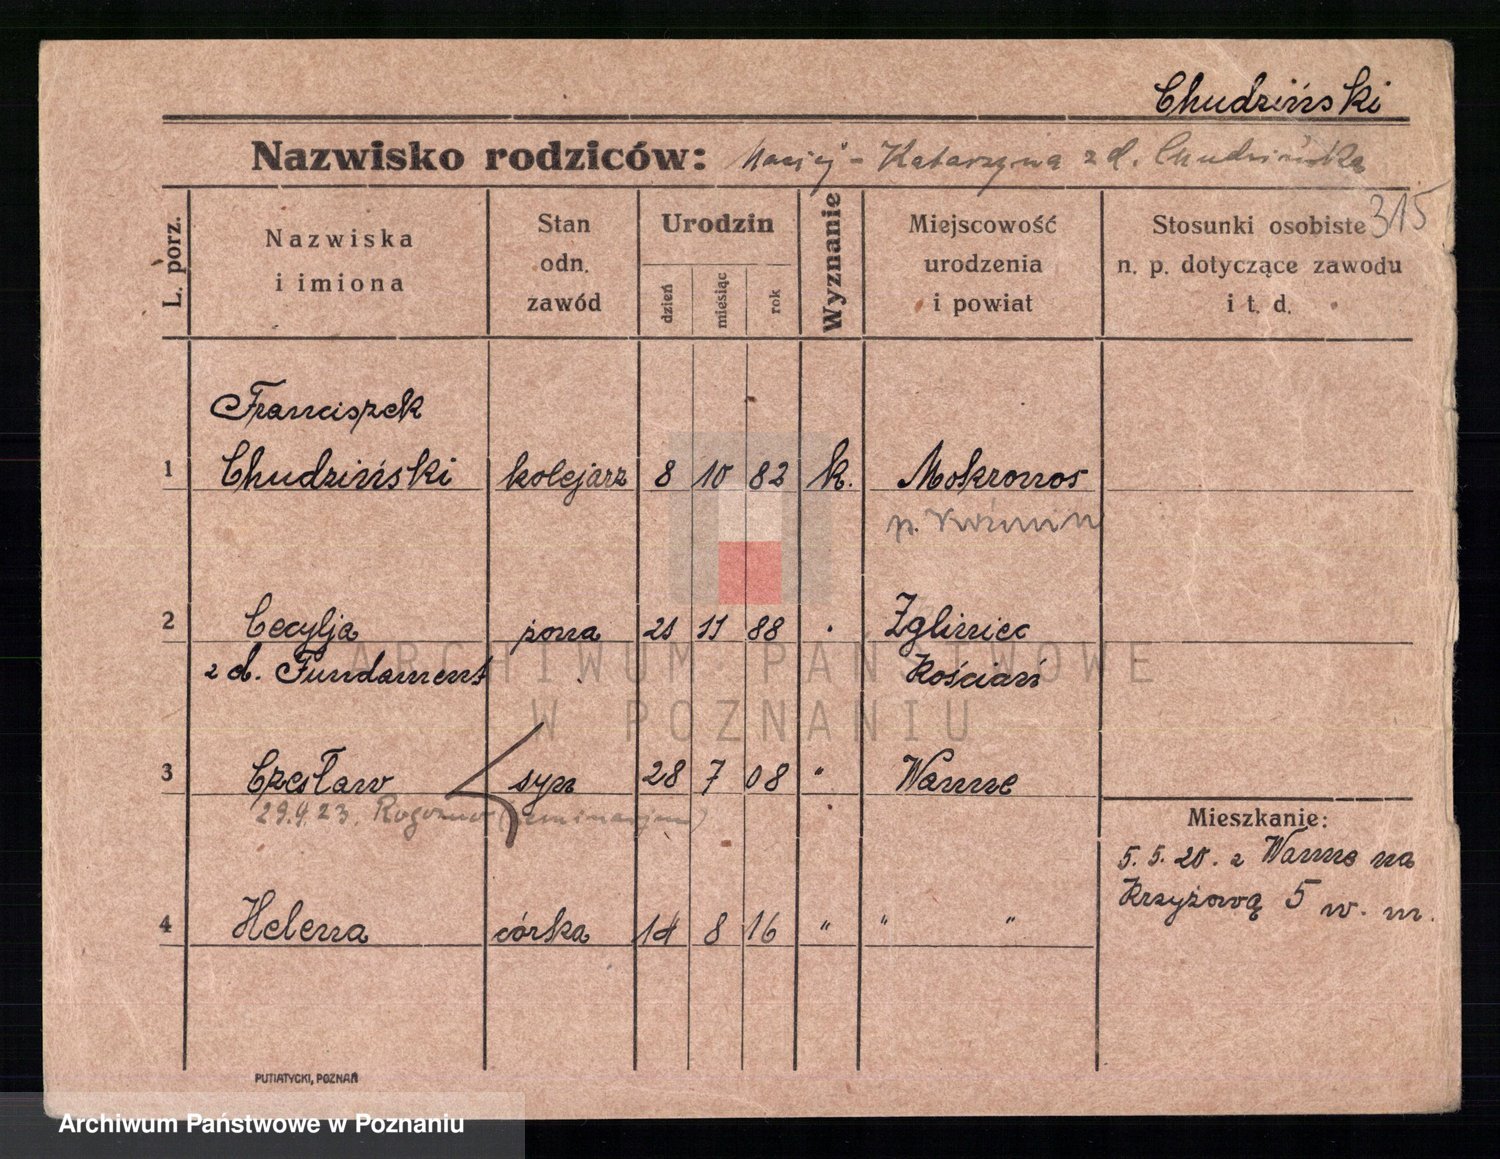 Chudziński
Nazwisko rodziców: Maciej - Katarzyna z d. Chudzińska
315
L. porz.
Nazwiska
i imiona
Stan
odn.
zawód
Urodzin
dzień
miesiąc
rok
Wyznanie
Miejscowość
urodzenia
i powiat
Stosunki osobiste
n. p. dotyczące zawodu
i t. d.
Franciszek
1 Chudziński kolejarz 8 10 82 k. Mokronos
p. Koźmin
2 Cecylja żona 21 11 88 Zgliniec
z d. Fundament Kościan
3 Czesław syn 28 7 08 " Wanne
29.9.23. Rogoźno (seminarjum)
Mieszkanie:
5. 5. 20. z Wanne na
Krzyżową 5 w. m.
4 Helena córka 14 8 16 " " "
ARCHIWUM PAŃSTWOWE
W POZNANIU
PUTIATYCKI, POZNAŃ
Archiwum Państwowe w Poznaniu